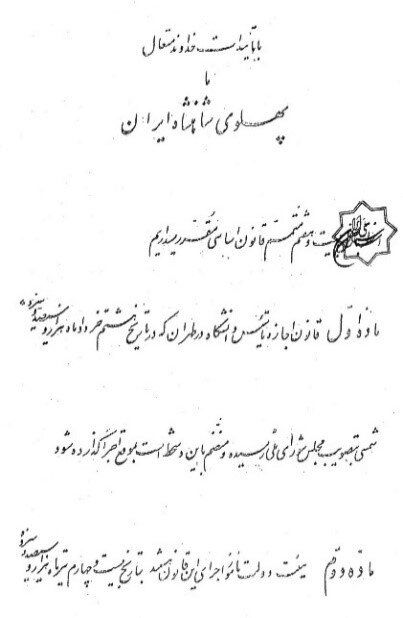 با تأییدات خداوند متعال
ما
پهلوی شاهنشاه ایران
بیست و هفتم متمم قانون اساسی مقرر میداریم
مادهٔ اول قانون اجازه تأسیس دانشگاه در طهران که در تاریخ هشتم خرداد ماه هزار و سیصد و سیزده
شمسی بتصویب مجلس شورای ملی رسیده و منضم باین دستخط است بموقع اجرا گذارده شود
مادهٔ دوم هیئت دولت مأمور اجرای این قانون هستند بتاریخ بیست و چهارم تیر ماه هزار و سیصد و سیزده